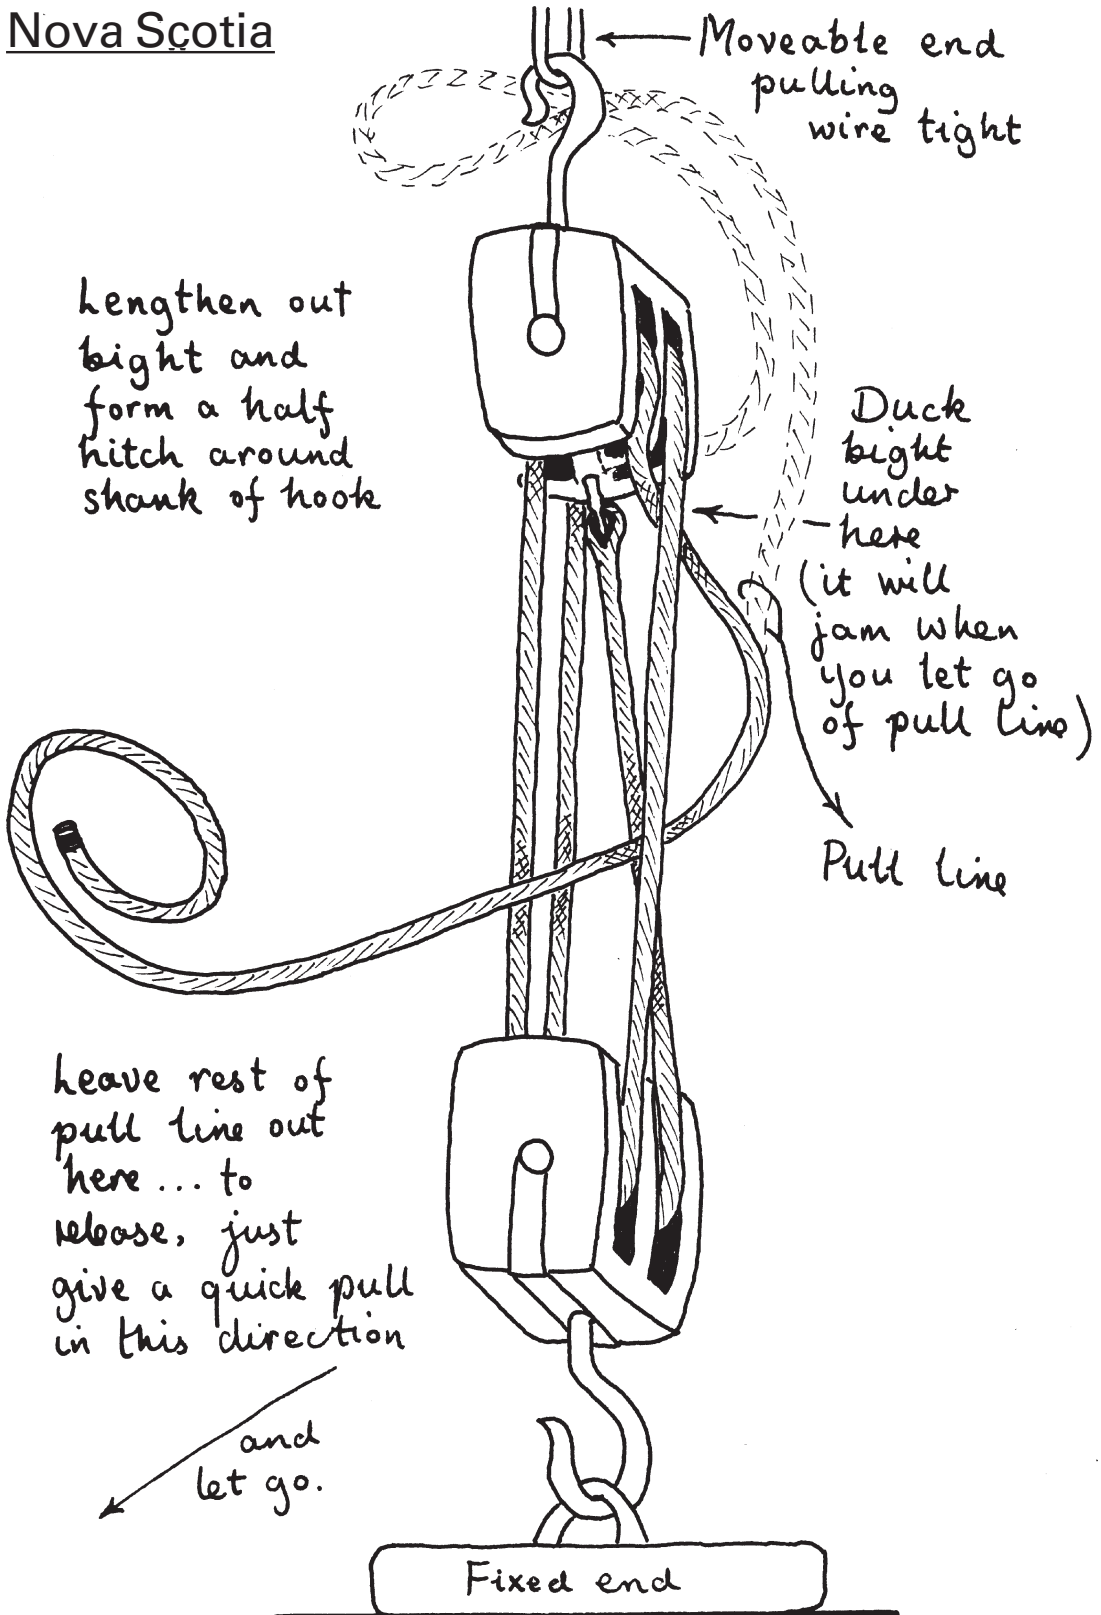 Nova Scotia
Moveable end
pulling
wire tight
Lengthen out
bight and
form a half
hitch around
shank of hook
Duck
bight
under
here
(it will
jam when
you let go
of pull line)
Pull line
Leave rest of
pull line out
here... to
release, just
give a quick pull
in this direction
and
let go.
Fixed end